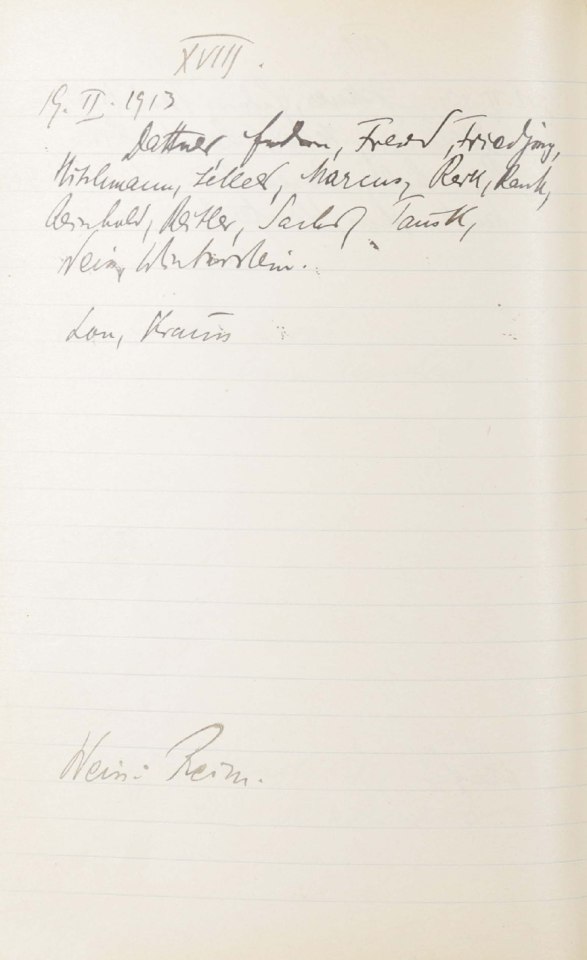 XVIII.
19. II. 1913
Dattner Federn, Freud, Friedjung,
Hitschmann, Jekels, Marcus, Reik, Rank,
Reinhold, Reitler, Sachs, Tausk,
Weiss, Winterstein.
Lou, Krauss
Weiss: Reim.